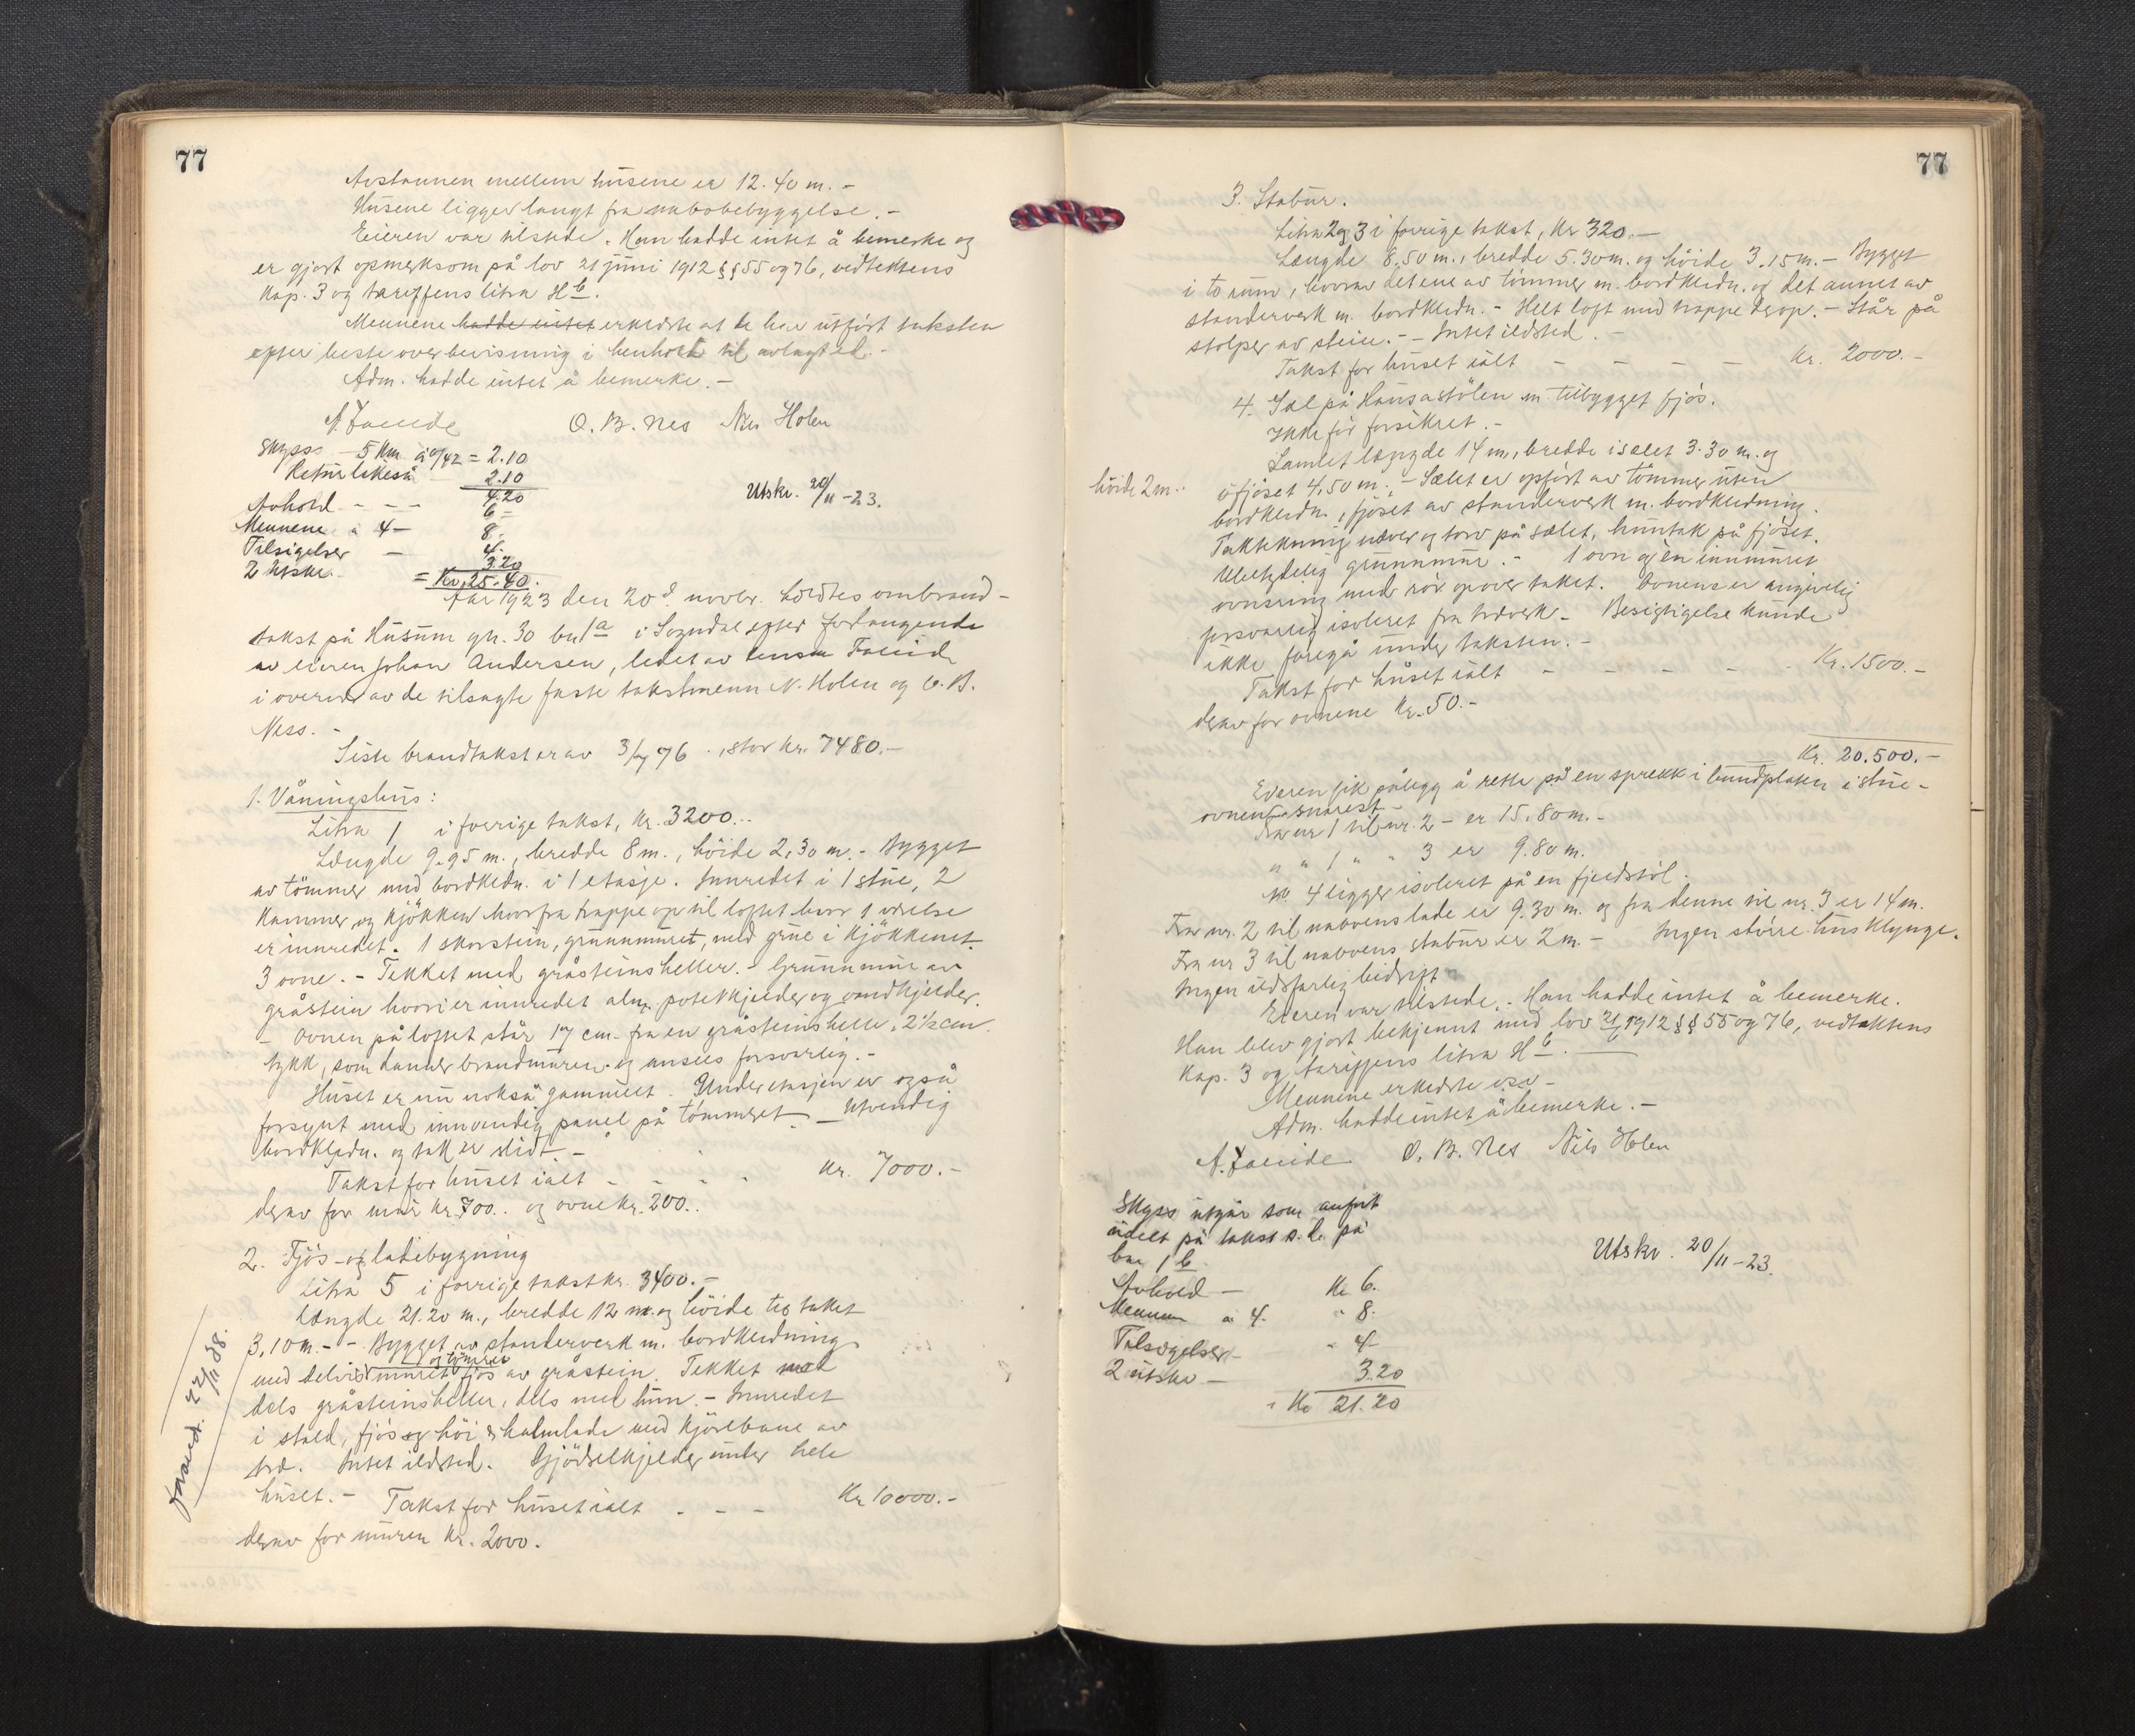 77
Avstannen mellem husene er 12.40 m. -
Husene ligger langt fra nabobebyggelse. -
Eieren var tilstede. Han hadde intet å bemerke og
er gjort opmerksom på lov 21 juni 1912 §§ 55 og 76, vedtektens
Kap. 3 og tariffens litra H b.
Mennene hadde intet erklærte at de har utført taksten
efter beste overbevisning i henhold til avlagt ed. -
Adm. hadde intet å bemerke. -
O. B. Nes Nils Holen
Skyss - 5 km à 0/42 = 2.10
Retur likeså 2.10
4.20
Avhold - - - 6 -
Mennene à 4 - 8.
Tilsigelser - 4.
2 utskr. 3.20
= Kr. 25.40.
Utskr. 20/11 - 23.
År 1923 den 20d novbr. holdtes ombrand-
takst på Husum gn. 30 bn 1a i Sogndal efter forlangende
av eieren Johan Andersen, ledet av lensm
i overvær av de tilsagte faste takstmenn N. Holen og O. B.
Ness. -
Siste brandtakst er av 3/7 76, stor kr. 7480. -
1. Våningshus:
Litra 1 i forrige takst, kr. 3200. -
Længde 9.95 m., bredde 8 m., höide 2,30 m. - Bygget
av tömmer med bordkledn. i 1 etasje. Innredet i 1 stue, 2
kammer, og kjökken hvorfra trappe op til loftet hvor 1 værelse
er innredet. 1 skorstein, grunnmuret, med grue i kjökkenet.
3 ovne. - Tekket med gråsteinsheller. - Grunnmur av
gråstein hvori er innredet alm. potetkjelder og vandkjelder.
- Ovnen på loftet står 17 cm. fra en gråsteinshelle, 2 1/2 cm
tykk, som danner brandmuren og ansees forsvarlig. -
Huset er nu nokså gammelt. Underetasjen er også
forsynt med innvendig panel på tömmeret. - Utvendig
bordkledn. og tak er slidt. -
Takst for huset ialt - - - - kr. 7000. -
derav for mur kr. 700.. og ovne kr. 200..
2. Fjös- og ladebygning
Litra 5 i forrige takst kr. 3400. -
Længde 21.20 m., bredde 12 m. og höide til taket
3,10 m. - - Bygget av standerverk m. bordkledning
og tömret
med delvis muret fjös av gråstein. Tekket med
dels gråsteinsheller, dels med hun. - Innredet
i stald, fjös og höi & halmlade med kjörebane av
træ. Intet ildsted. Gjödselkjelder under hele
huset. - Takst for huset ialt - - - Kr 10000. -
derav for muren kr. 2000.
22/11 38.
77
3. Stabur.
Litra 2 og 3 i forrige takst, kr 320. -
Længde 8.50 m., bredde 5.30 m. og höide 3.15 m. - Bygget
i to rum, hvorav det ene av tömmer m. bordkledn. og det annet av
standerverk m. bordkledn. - Helt loft med trappe derop. - Står på
stolper av stein. - - Intet ildsted. -
Takst for huset ialt - - - - kr. 2000. -
4. Sæl på Hansastölen m tilbygget fjös.
Ikke før forsikret. -
Samlet længde 14 m, bredde i sælet 3.30 m. og
höide 2 m..
i fjöset 4,50 m. - Sælet er opfört av tömmer uten
bordkledn., fjöset av standerverk m. bordkledning.
Taktekning næver og torv på sælet, huntak på fjöset.
Ubetydelig grunnmur. - 1 ovn og en innmuret
ovnsring med rör op over taket. Ovnene er angivelig
forsvarlig isoleret fra træverk. - Besigtigelse kunde
ikke foregå under taksten. -
Takst for huset ialt - - - - Kr. 1500. -
derav for ovnene kr. 50. -
Kr. 20.500. -
Eieren fik pålegg å rette på en sprekk i bundplaten i stue-
ovnen snarest -
Fra nr 1 til nr. 2 - er 15.80 m. -
" " 1 " " 3 er 9.80 m.
nr. 4 ligger isoleret på en fjeldstöl.
Fra nr. 2 til naboens lade er 9.30 m. og fra denne til nr. 3 er 14 m.
Fra nr 3 til naboens stabur er 2 m. - Ingen större husklynge.
Ingen ildsfarlig bedrift.
Eieren var tilstede. - Han hadde intet å bemerke.
Han blev gjort bekjennt med lov 21/6 1912 §§ 55 og 76, vedtektens
Kap. 3 og tariffens litra H b. -
Mennene erklærte osv -
Adm. hadde intet å bemerke. -
O. B. Nes Nils Holen
Skyss utgår som anfört
udelt på takst s. d. på
bnr 1 b.
Avhold - Kr 6.
Mennene à 4. " 8.
Tilsigelser - " 4 -
2 utskr - 3.20
= Kr 21.20
Utskr. 20/11 - 23.